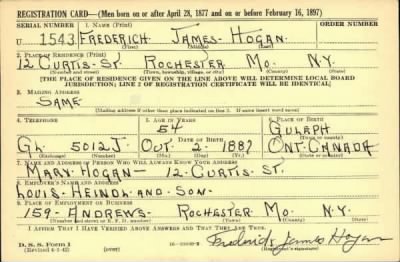 REGISTRATION CARD—(Men born on or after April 28, 1877 and on or before February 16, 1897)
SERIAL NUMBER 1. NAME (Print) ORDER NUMBER
U 1543 FREDERICH JAMES HOGAN
(First) (Middle) (Last)
2. PLACE OF RESIDENCE (Print)
12 CURTIS-ST. ROCHESTER MO. N.Y.
(Number and street) (Town, township, village, or city) (County) (State)
[THE PLACE OF RESIDENCE GIVEN ON THE LINE ABOVE WILL DETERMINE LOCAL BOARD
JURISDICTION; LINE 2 OF REGISTRATION CERTIFICATE WILL BE IDENTICAL]
3. MAILING ADDRESS
SAME
[Mailing address if other than place indicated on line 2. If same insert word same]
4. TELEPHONE 5. AGE IN YEARS 6. PLACE OF BIRTH
54 GULEPH
DATE OF BIRTH (Town or county)
GL 5012 J. OCT. 2. 1887 ONT-CANADA
(Exchange) (Number) (Mo.) (Day) (Yr.) (State or country)
7. NAME AND ADDRESS OF PERSON WHO WILL ALWAYS KNOW YOUR ADDRESS
MARY HOGAN— 12-CURTIS-ST.
8. EMPLOYER'S NAME AND ADDRESS
LOUIS-HEINDL-AND SON-
9. PLACE OF EMPLOYMENT OR BUSINESS
159-ANDREWS- ROCHESTER MO- N.Y.
(Number and street or R. F. D. number) (Town) (County) (State)
I AFFIRM THAT I HAVE VERIFIED ABOVE ANSWERS AND THAT THEY ARE TRUE.
D. S. S. Form 1
(Revised 4-1-42) (over) Frederick James Hogan
(Registrant's signature)